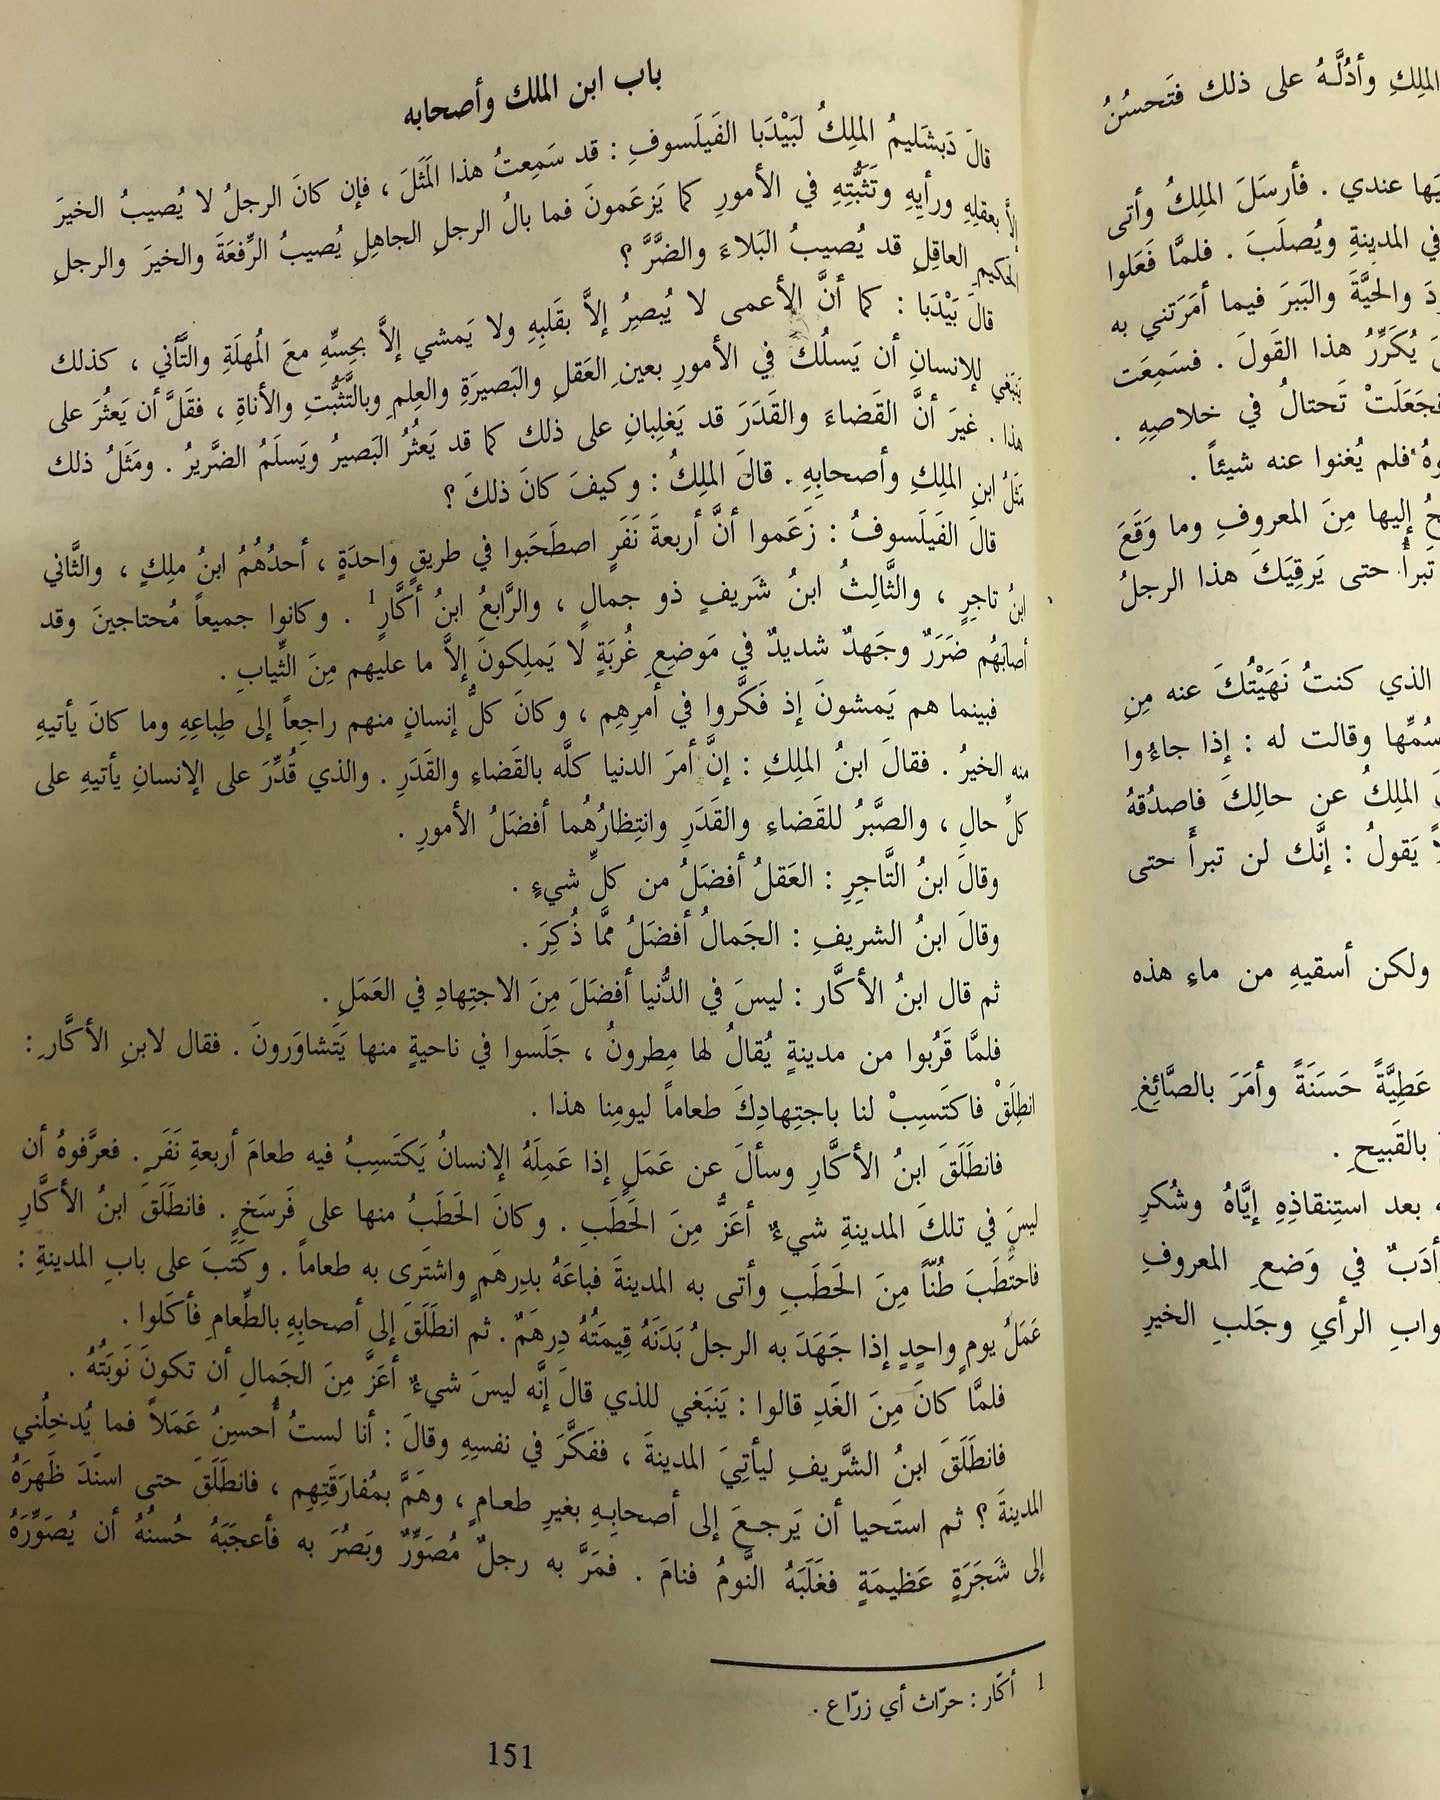 الملِكِ وأدُلَّـهُ على ذلك فتَحسُنُ
عندي . فأرسَلَ الملِكُ وأتى
في المدينةِ ويُصلَبَ . فلمَّا فَعَلوا
والحيَّةَ والبَبرَ فيما أمَرَتني به
يُكَرِّرُ هذا القَولَ . فسَمِعَت
فجَعَلَتْ تَحتالُ في خلاصِهِ .
فلم يُغنوا عنه شيئاً .
إليها مِنَ المعروفِ وما وَقَعَ
تَبرأُ حتى يَرقِيَكَ هذا الرجلُ
الذي كنتُ نَهَيْتُكَ عنه مِن
سُمِّها وقالت له : إذا جاءُوا
الملِكُ عن حالِكَ فاصدُقهُ
يَقولُ : إنَّك لن تبرأَ حتى
ولكن أسقيهِ من ماءِ هذه
عَطِيَّةً حَسَنَةً وأمَرَ بالصَّائِغِ
بالقَبيحِ .
بعد استِنقاذِهِ إيَّاهُ وشُكرِ
أدَبٌ في وَضعِ المعروفِ
الرأيِ وجَلبِ الخيرِ
باب ابن الملك وأصحابه
قالَ دَبشَليمُ الملِكُ لبَيْدَبا الفَيلَسوفِ : قد سَمِعتُ هذا المَثَلَ ، فإن كانَ الرجلُ لا يُصيبُ الخيرَ
إلاَّ بعقلِهِ ورأيِهِ وتَثَبُّتِهِ في الأمورِ كما يَزعَمونَ فما بالُ الرجلِ الجاهِلِ يُصيبُ الرِّفعَةَ والخيرَ والرجلِ
الحَكيمِ العاقِلِ قد يُصيبُ البَلاءَ والضَّرَّ ؟
قالَ بَيْدَبا : كما أنَّ الأعمى لا يُبصِرُ إلاَّ بقَلبِهِ ولا يَمشي إلاَّ بحِسِّهِ معَ المُهلَةِ والتَّأني ، كذلك
يَنبَغي للإنسانِ أن يَسلُكَ في الأمورِ بعينِ العَقلِ والبَصيرَةِ والعِلمِ وبالتَّثَبُّتِ والأناةِ ، فقَلَّ أن يَعثُرَ على
هذا . غيرَ أنَّ القَضاءَ والقَدَرَ قد يَغلِبانِ على ذلك كما قد يَعثُرُ البَصيرُ ويَسلَمُ الضَّريرُ . ومَثَلُ ذلك
مَثَلُ ابنِ الملِكِ وأصحابِهِ . قالَ الملِكُ : وكيفَ كانَ ذلكَ ؟
قالَ الفَيلَسوفُ : زَعَموا أنَّ أربعةَ نَفَرٍ اصطَحَبوا في طريقٍ واحدَةٍ ، أحدُهُمُ ابنُ ملِكٍ ، والثَّاني
ابنُ تاجِرٍ ، والثَّالِثُ ابنُ شَريفٍ ذو جمالٍ ، والرَّابعُ ابنُ أكَّارٍ1 . وكانوا جميعاً مُحتاجينَ وقد
أصابَهُم ضَرَرٌ وجَهدٌ شديدٌ في مَوضِعِ غُربَةٍ لا يَملِكونَ إلاَّ ما عليهم مِنَ الثِّيابِ .
فبينما هم يَمشونَ إذ فَكَّروا في أمرِهِم ، وكانَ كلُّ إنسانٍ منهم راجِعاً إلى طِباعِهِ وما كانَ يأتيهِ
منه الخيرُ . فقالَ ابنُ الملِكِ : إنَّ أمرَ الدنيا كلَّه بالقَضاءِ والقَدَرِ . والذي قُدِّرَ على الإنسانِ يأتيهِ على
كلِّ حالٍ ، والصَّبرُ للقَضاءِ والقَدَرِ وانتِظارُهُما أفضَلُ الأمورِ .
وقالَ ابنُ التَّاجِرِ : العَقلُ أفضَلُ من كلِّ شيءٍ .
وقالَ ابنُ الشريفِ : الجَمالُ أفضَلُ ممَّا ذُكِرَ .
ثم قال ابنُ الأكَّار : ليسَ في الدُّنيا أفضَلَ مِنَ الاجتِهادِ في العَمَلِ .
فلمَّا قَرُبوا من مدينةٍ يُقالُ لها مِطرونُ ، جَلَسوا في ناحيةٍ منها يَتَشاوَرونَ . فقال لابنِ الأكَّارِ :
انطلَقْ فاكتَسِبْ لنا باجتِهادِكَ طعاماً ليومِنا هذا .
فانطَلَقَ ابنُ الأكَّارِ وسألَ عن عَمَلٍ إذا عَمِلَهُ الإنسانُ يَكتَسِبُ فيه طعامَ أربعةِ نَفَرٍ . فعرَّفوهُ أن
ليسَ في تلكَ المدينةِ شيءٌ أعَزُّ مِنَ الحَطَبِ . وكانَ الحَطَبُ منها على فَرسَخٍ . فانطَلَقَ ابنُ الأكَّارِ
فاحتطَبَ طُنّاً مِنَ الحَطَبِ وأتى به المدينةَ فباعَهُ بدِرهَمٍ واشتَرى به طعاماً . وكتَبَ على بابِ المدينةِ :
عَمَلُ يومٍ واحِدٍ إذا جَهَدَ به الرجلُ بَدَنَهُ قِيمَتُهُ دِرهَمٌ . ثم انطَلَقَ إلى أصحابِهِ بالطَّعامِ فأكَلوا .
فلمَّا كانَ مِنَ الغَدِ قالوا : يَنبَغي للذي قالَ إنَّه ليسَ شيءٌ أعَزَّ مِنَ الجَمالِ أن تكونَ نَوبَتُهُ .
فانطَلَقَ ابنُ الشَّريفِ ليأتِيَ المدينةَ ، ففَكَّرَ في نفسِهِ وقالَ : أنا لستُ أُحسِنُ عَمَلاً فما يُدخِلُني
المدينةَ ؟ ثم استَحيا أن يَرجِـعَ إلى أصحابِـهِ بغيرِ طعـامٍ ، وهَمَّ بمُفارَقَتِهِم ، فانطَلَقَ حتى اسنَدَ ظَهرَهُ
إلى شَجَرَةٍ عَظيمَةٍ فغَلَبَهُ النَّومُ فنامَ . فمَرَّ به رجلٌ مُصَوِّرٌ وبَصُرَ به فأعجَبَهُ حُسنُهُ أن يُصَوِّرَهُ
1 أكّار : حرّاث أي زرّاع .
151